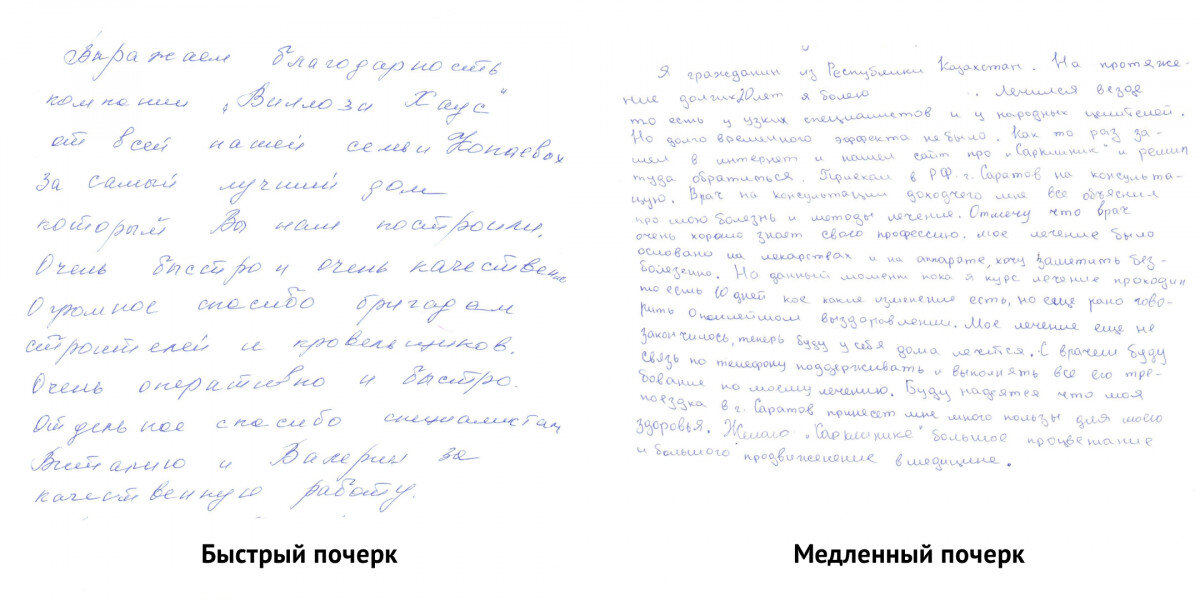 Выражаем благодарность
компании „Виллози Хаус"
от всей нашей семьи
за самый лучший дом
который Вы нам построили.
Очень быстро и очень качественно
Огромное спасибо бригадам
строителей и кровельщиков.
Очень оперативно и быстро.
Отдельное спасибо специалистам
Виталию и Валерию за
качественную работу.
Быстрый почерк
Я гражданин из Республики Казахстан. На протяже-
ние долгих 20 лет я болею .. Лечился везде
то есть у узких специалистов и у народных целителей.
Но долго временного эффекта не было. Как то раз за-
шел в интернет и нашел сайт про „Саркииник" и решил
туда обратиться. Приехал в РФ. г. Саратов на консульта-
цую. Врач на консультации доходчего мне все объяснил
про мою болезнь и методы лечение. Отмечу что врач
очень хорошо знает свою профессию. мое лечение было
основано на лекарствах и на аппарате, хочу заметить без-
болезенно. На данный момент пока я курс лечение проходил
то есть 10 дней кое какие изменение есть, но еще рано гово-
рить о выздоровлении. Мое лечение еще не
закончилось, теперь буду у себя дома лечится. С врачем буду
связь по телефону поддерживать и выполнять все его тре-
бование по моему лечению. Буду надеятся что моя
поездка в г. Саратов принесет мне много пользы для моего
здоровья. Желаю „Сарклинике" большое процветание
и большого продвиженение в медицине.
Медленный почерк